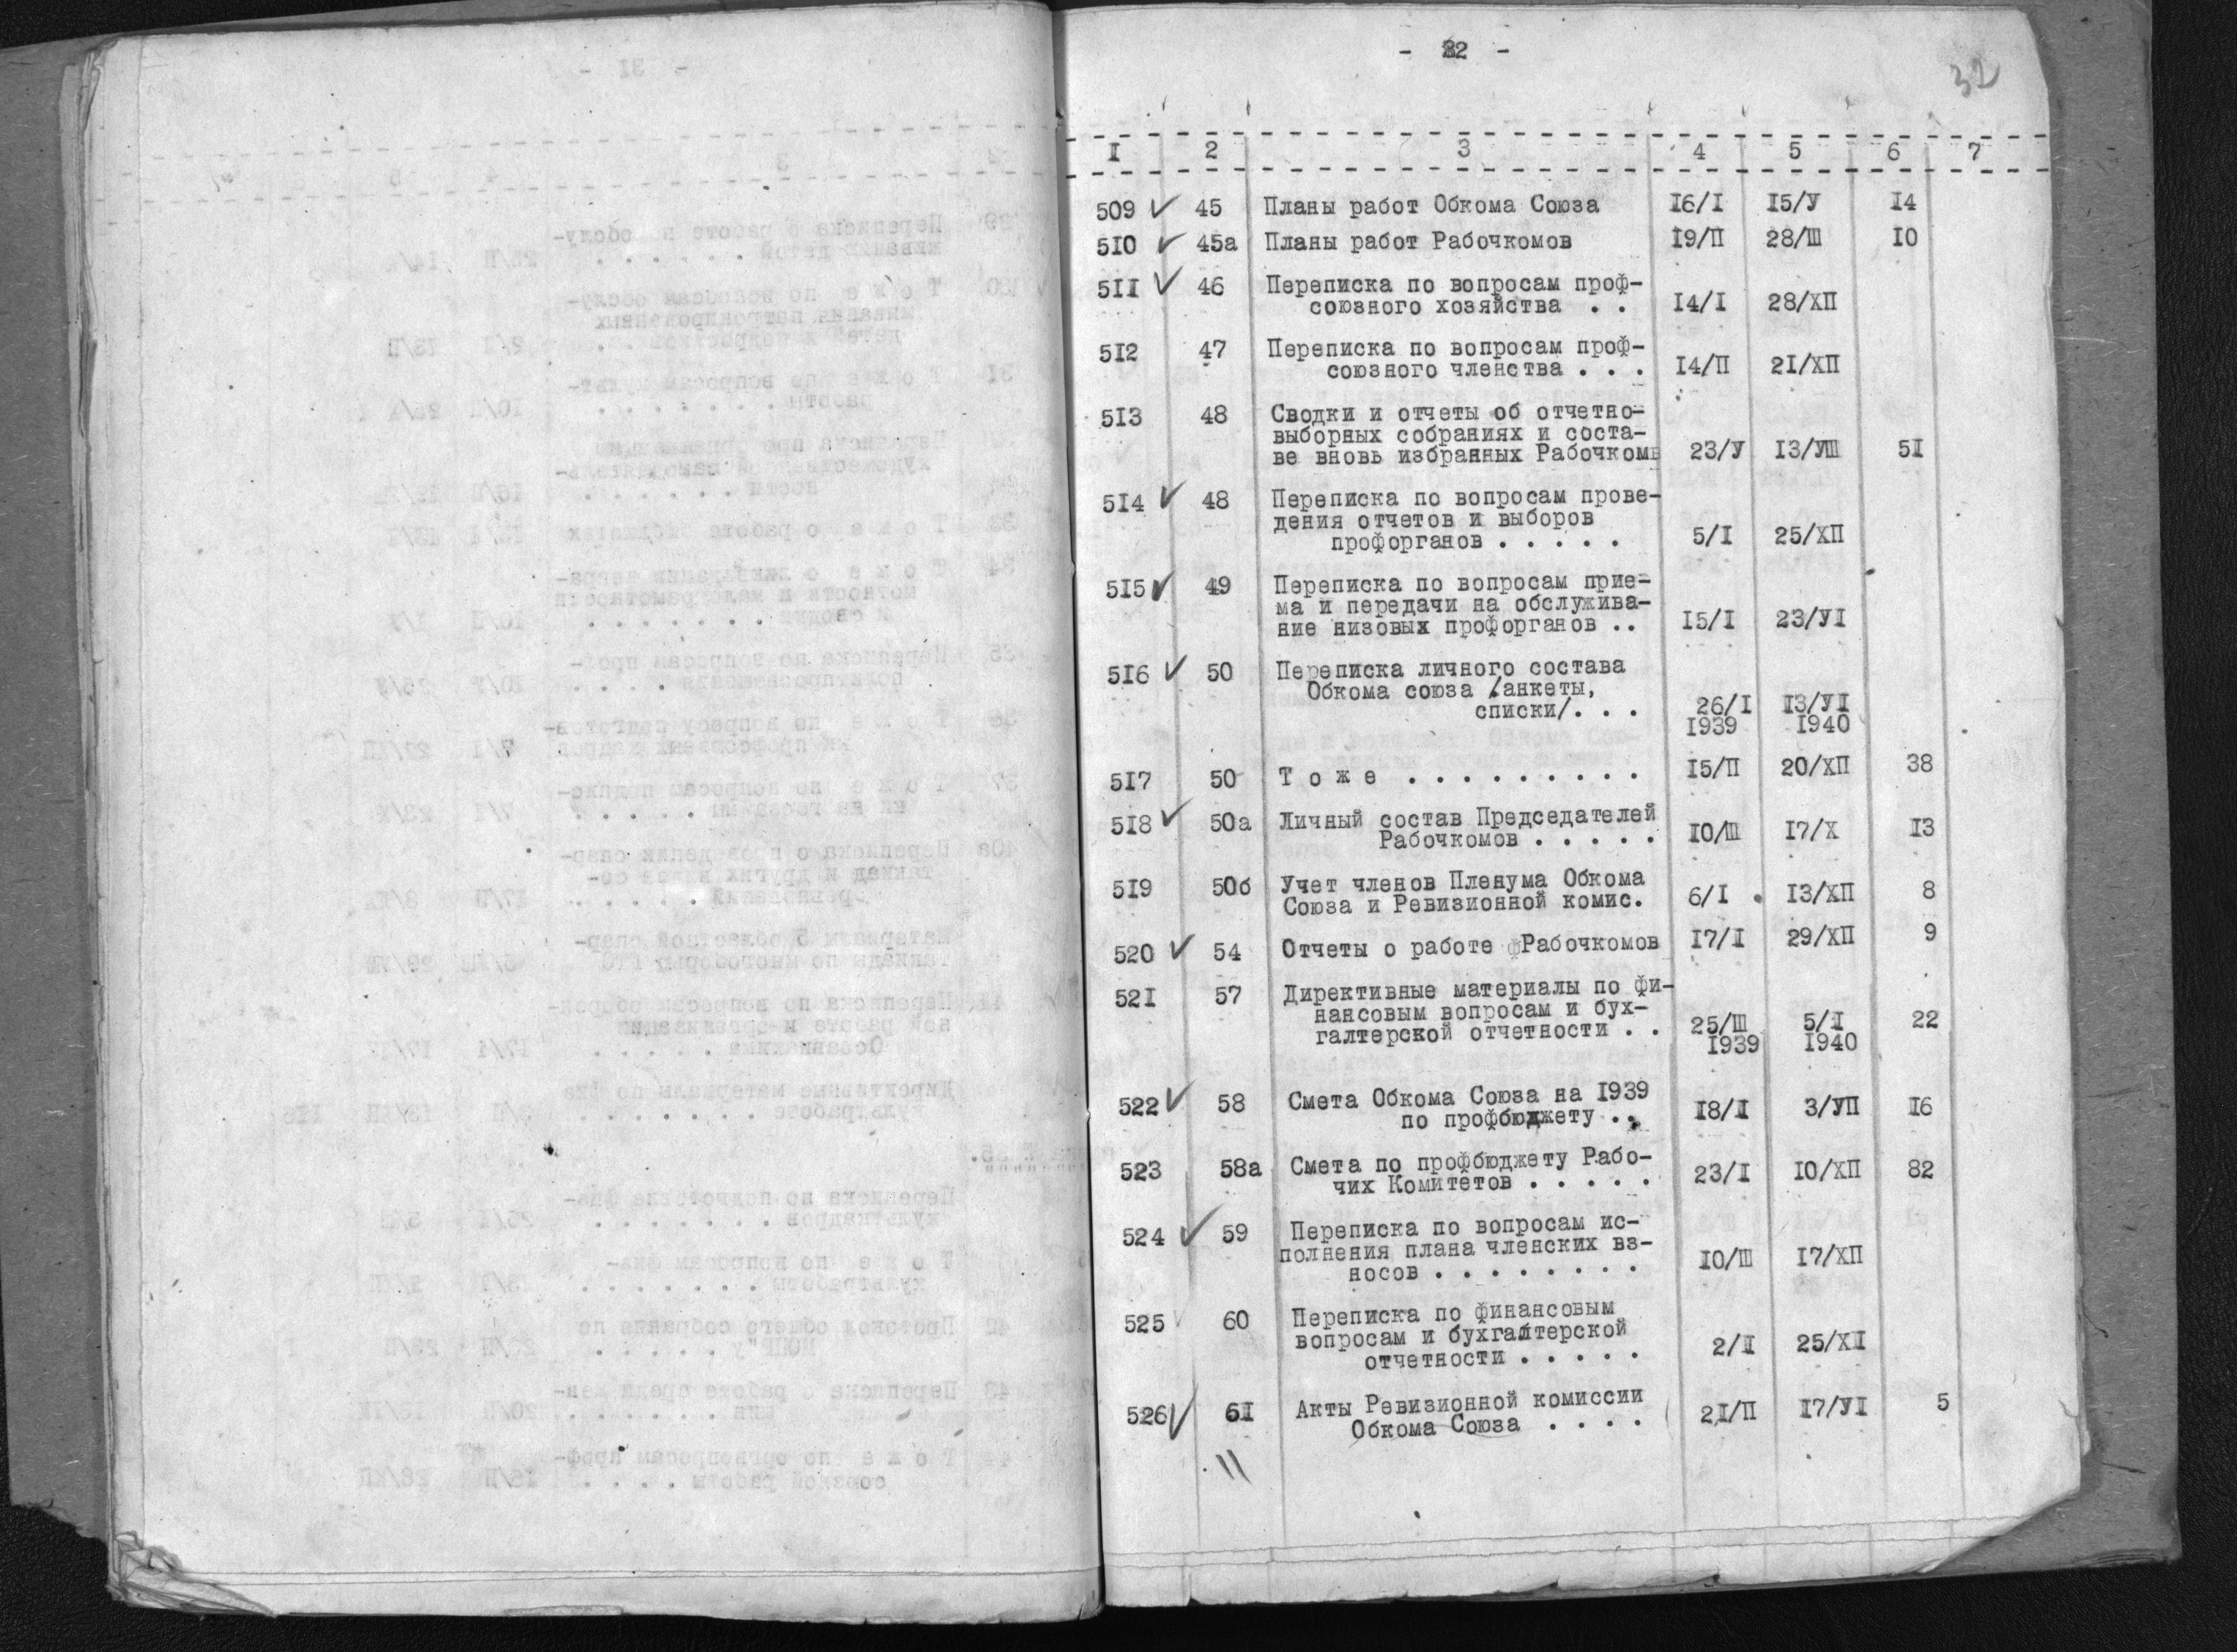 - 32 -
32
I 2 3 4 5 6 7
509 ✓ 45 Планы работ Обкома Союза 16/I 15/У 14
510 ✓ 45а Планы работ Рабочкомов 19/П 28/Ш 10
511 ✓ 46 Переписка по вопросам проф-
союзного хозяйства . . 14/I 28/ХП
512 47 Переписка по вопросам проф-
союзного членства . . . 14/П 21/ХП
513 48 Сводки и отчеты об отчетно-
выборных собраниях и соста-
ве вновь избранных Рабочкомв 23/У 13/УШ 51
514 ✓ 48 Переписка по вопросам прове-
дения отчетов и выборов
профорганов . . . . . 5/I 25/ХП
515 ✓ 49 Переписка по вопросам прие-
ма и передачи на обслужива-
ние низовых профорганов .. 15/I 23/УI
516 ✓ 50 Переписка личного состава
Обкома союза /анкеты,
списки/. . . 26/I 13/УI
1939 1940
517 50 Т о ж е . . . . . . . . . 15/П 20/ХП 38
518 ✓ 50а Личный состав Председателей
Рабочкомов . . . . . 10/Ш 17/Х 13
519 50б Учет членов Пленума Обкома
Союза и Ревизионной комис. 6/I 13/ХП 8
520 ✓ 54 Отчеты о работе Рабочкомов 17/I 29/ХП 9
521 57 Директивные материалы по фи-
нансовым вопросам и бух-
галтерской отчетности . . 25/Ш 5/I 22
1939 1940
522 ✓ 58 Смета Обкома Союза на 1939
по профбюджету .. 18/I 3/УП 16
523 58а Смета по профбюджету Рабо-
чих Комитетов . . . . . 23/I 10/ХП 82
524 ✓ 59 Переписка по вопросам ис-
полнения плана членских вз-
носов . . . . . . . . 10/Ш 17/ХП
525 ✓ 60 Переписка по финансовым
вопросам и бухгалтерской
отчетности . . . . . 2/I 25/ХI
526 ✓ 61 Акты Ревизионной комиссии
Обкома Союза . . . . 21/П 17/УI 5